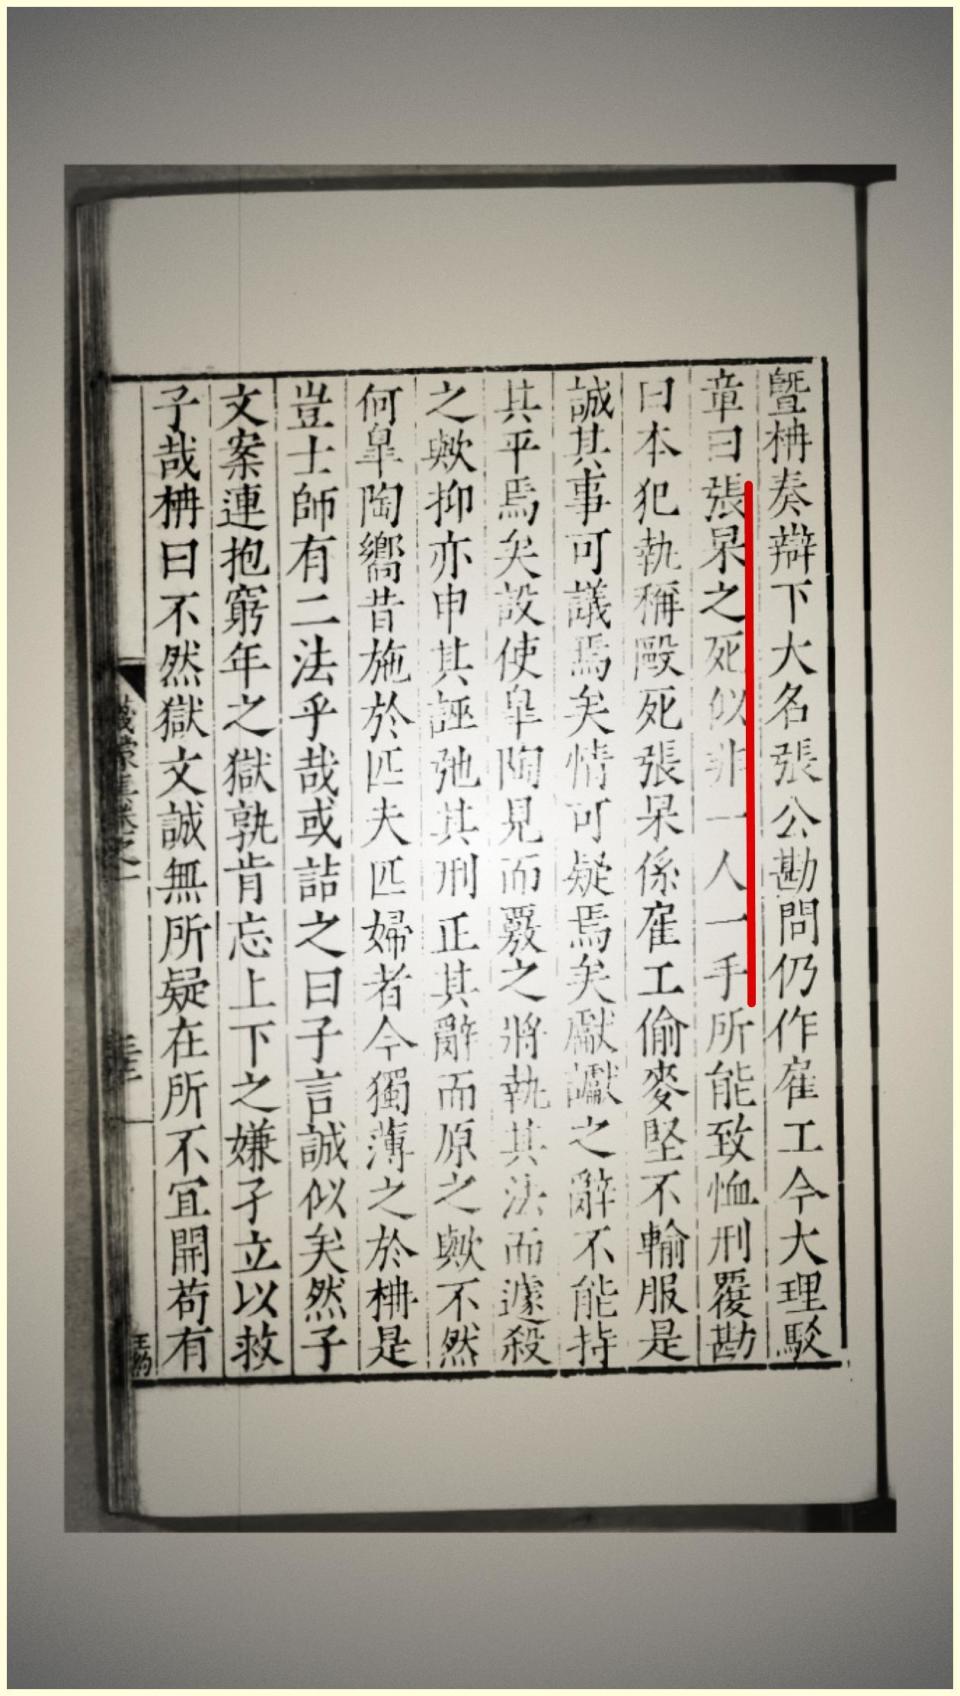 暨枏奏辯下大名張公勘問仍作雇工今大理駁
章曰張杲之死似非一人一手所能致恤刑覆勘
曰本犯執稱毆死張杲係雇工偷麥堅不輸服是
誠其事可議焉矣情可疑焉矣厭讞之辭不能持
其平焉矣設使皐陶見而覈之將執其法而遽殺
之歟抑亦申其誣弛其刑正其辭而原之歟不然
何皐陶嚮昔施於匹夫匹婦者今獨薄之於枏是
豈士師有二法乎哉或詰之曰子言誠似矣然子
文案連抱窮年之獄孰肯忘上下之嫌孑立以救
子哉枏曰不然獄文誠無所疑在所不宜開苟有